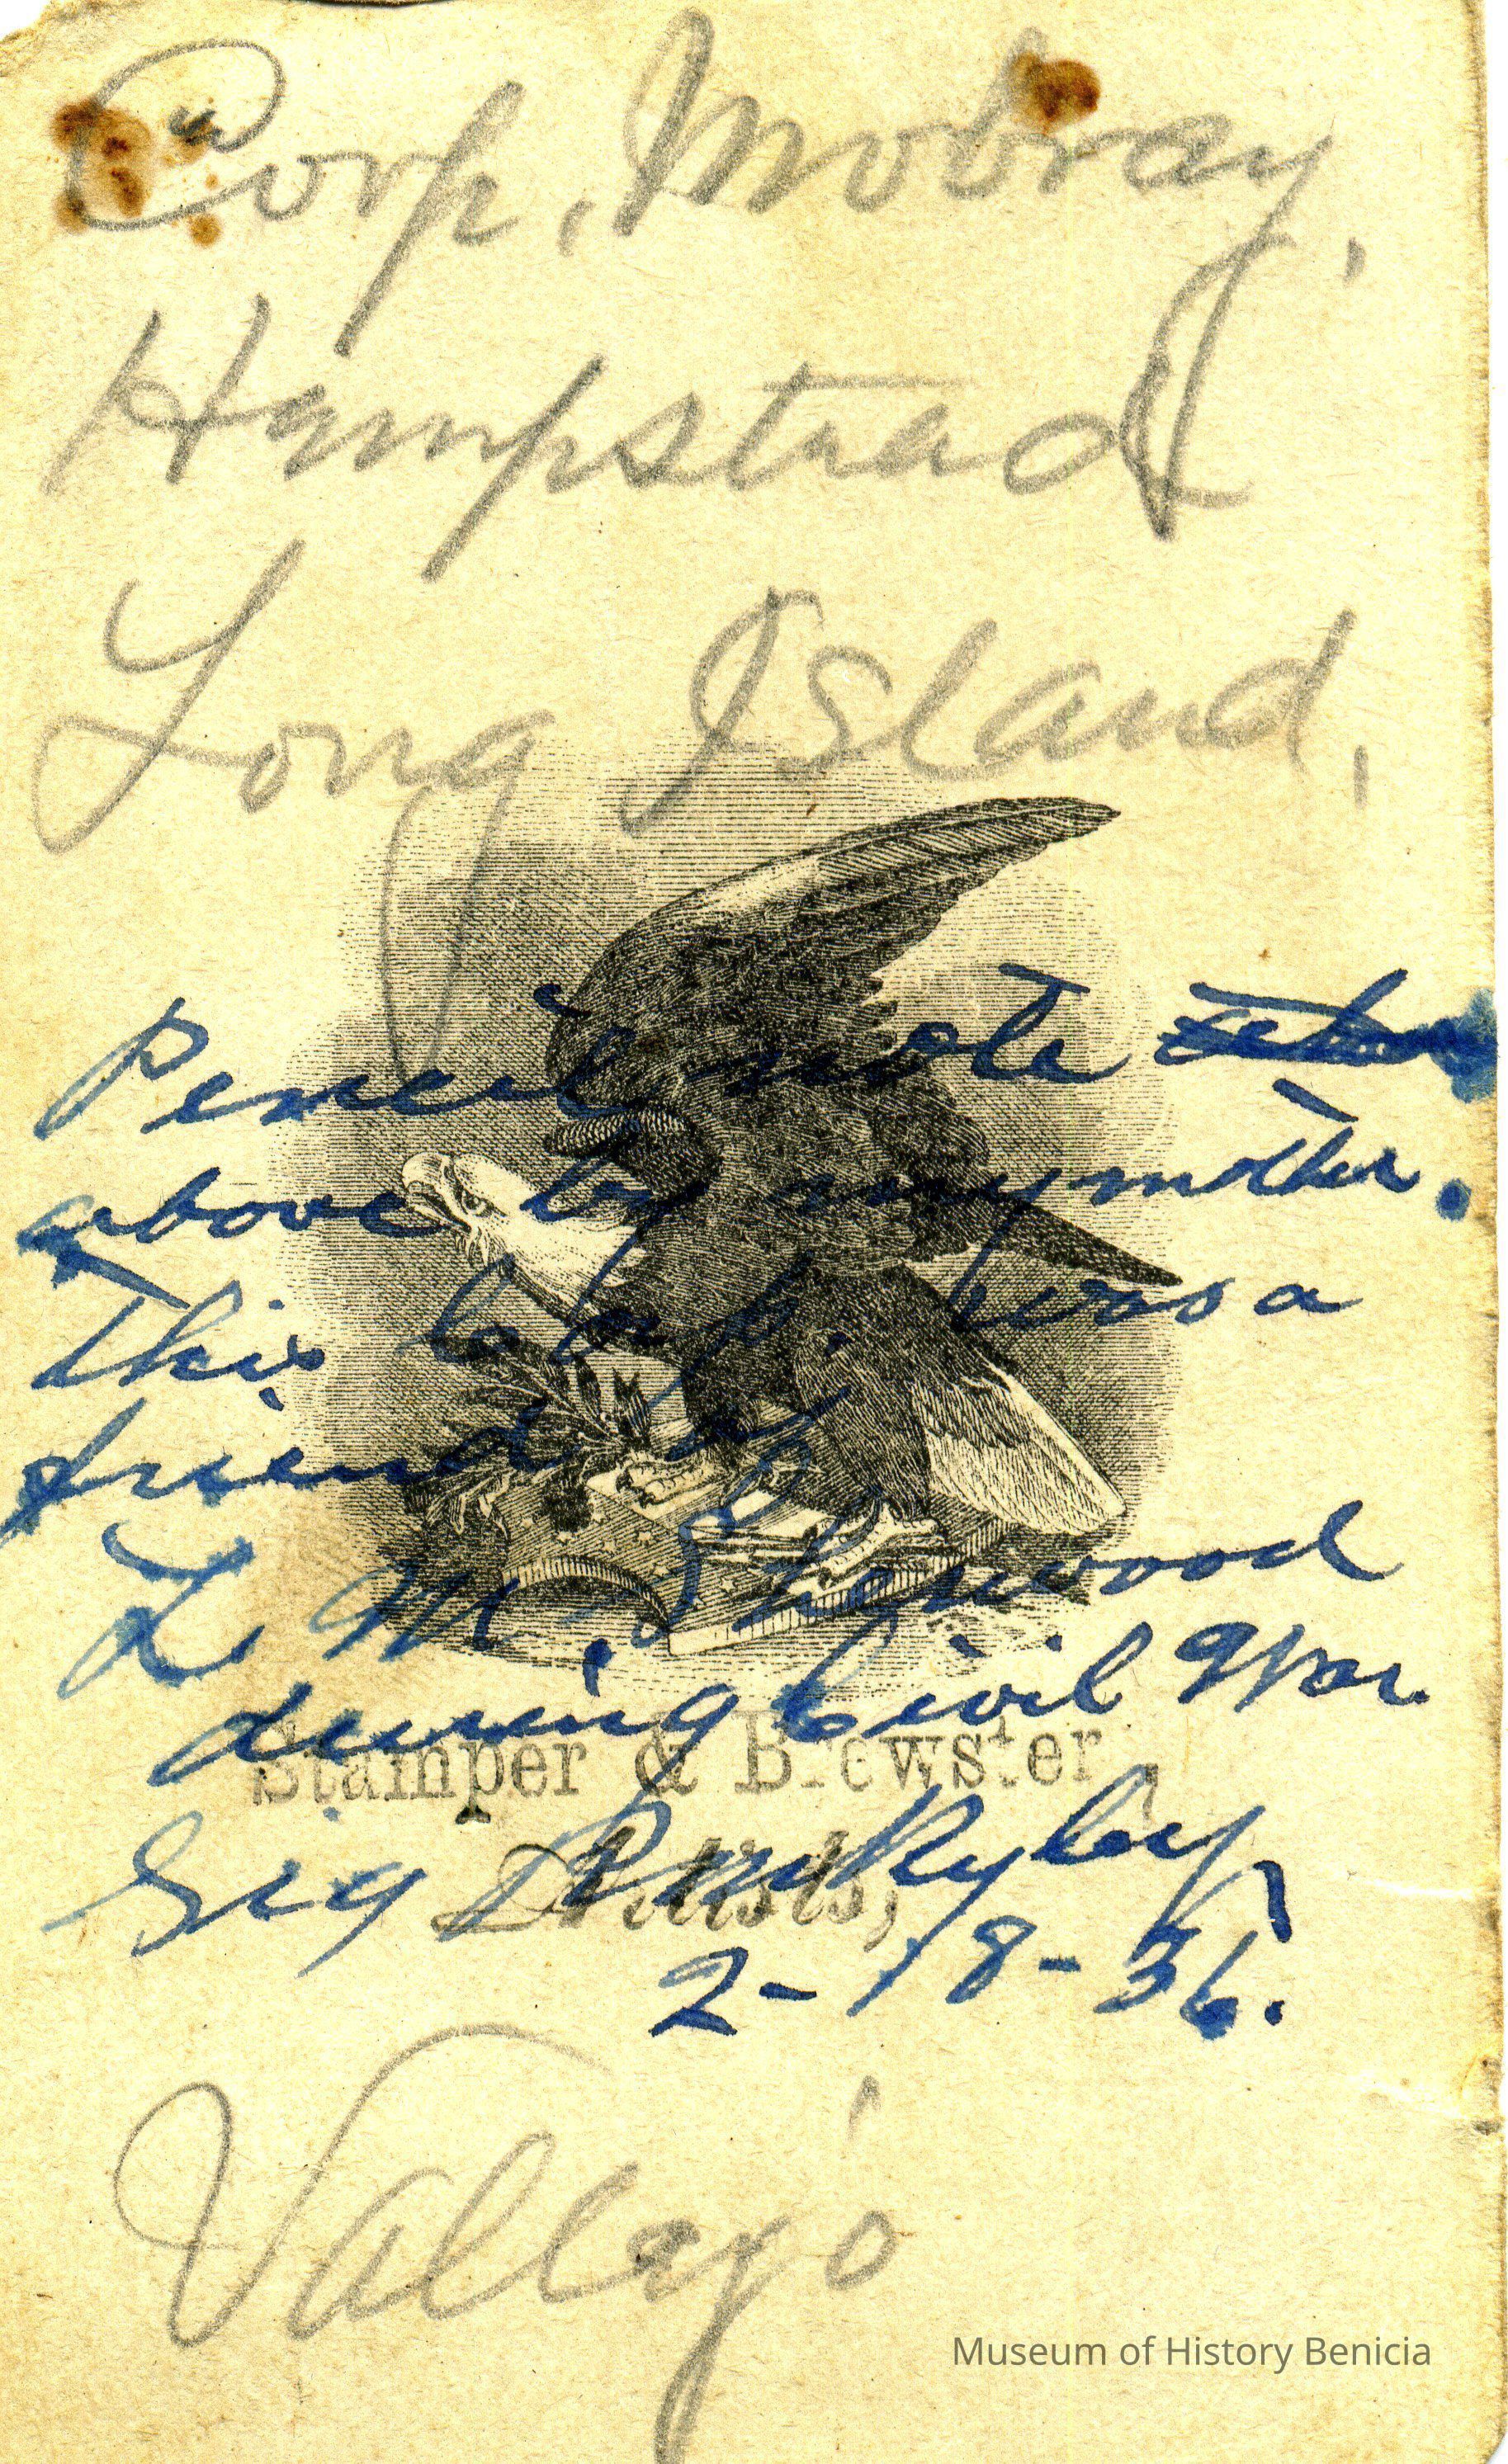 Corp. Mobray,
Hempstead
Long Island,
Pencil note
above by my mother.
This Corp. was a
friend of
L. M. Sherwood
during Civil War.
Stamper & Brewster,
Sig
Artists,
2-18-36.
Vallejo
Museum of History Benicia